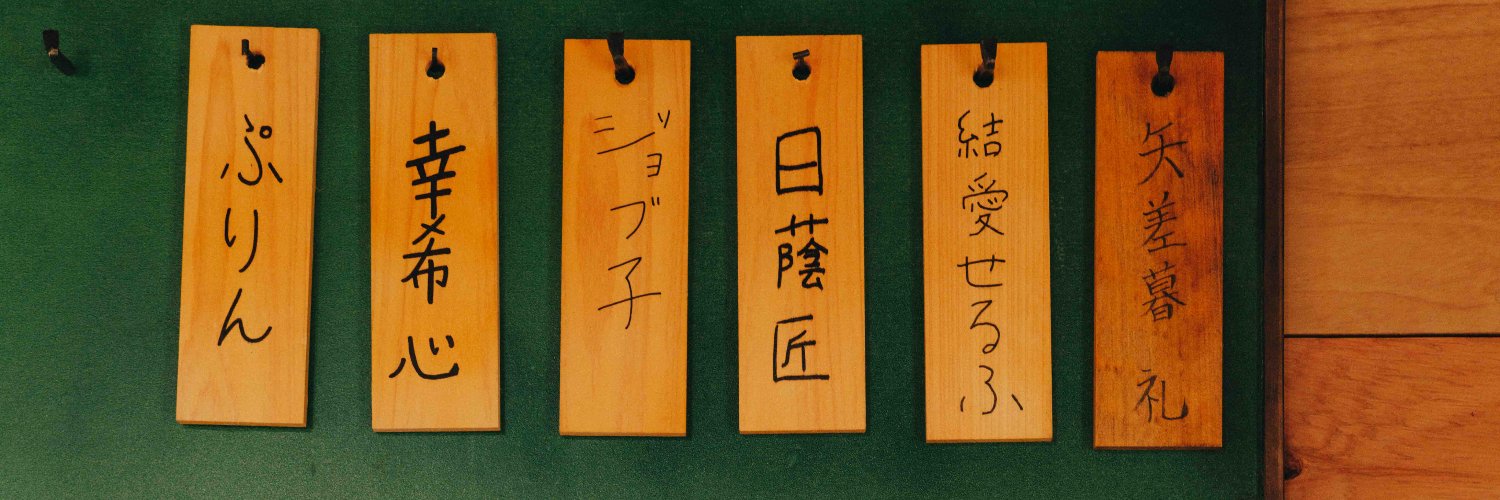 矢差暮 礼
結愛せるふ
日蔭 匠
ジョブ子
幸希 心
ぷりん